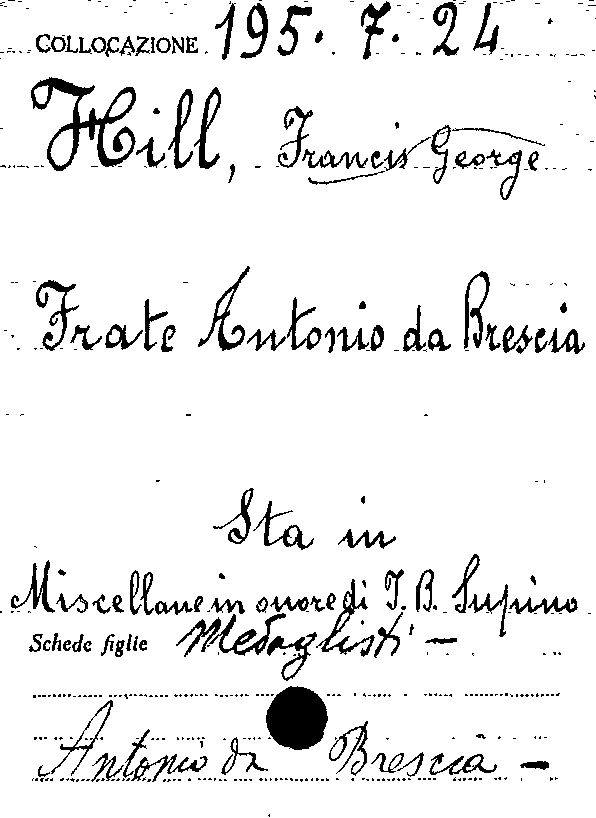 COLLOCAZIONE 195. 7. 24
Hill, Francis George
Frate Antonio da Brescia
Sta in
Miscellane in onore di I. B. Supino
Schede figlie Medaglisti -
Antonio da Brescia -